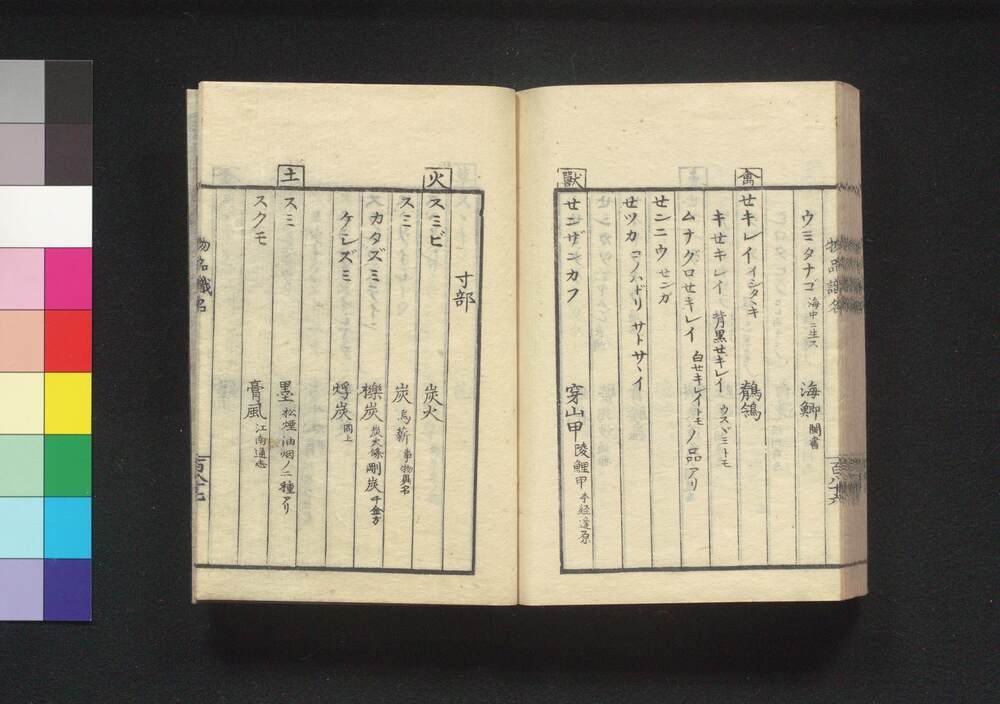 ウミタナゴ 海中ニ生ス 海鯽 閩書
禽
セキレイ イシタヽキ 鶺鴒
キセキレイ 背黒セキレイ ウスヾミトモ
ムナグロセキレイ 白セキレイトモ ノ品アリ
センニウ センガ
セツカ コノハドリ サトサヽイ
獸
センザンカフ 穿山甲 陵鯉甲 本經逢原
百八十六
寸部
火
スミビ 炭火
スミ 炭 烏薪 事物異名
カタズミ 櫟炭 剛炭 千金方
ケシズミ 烰炭 同上
土
スミ 墨 松煙油烟ノ二種アリ
スクモ 膏風 江南通志
物品識名